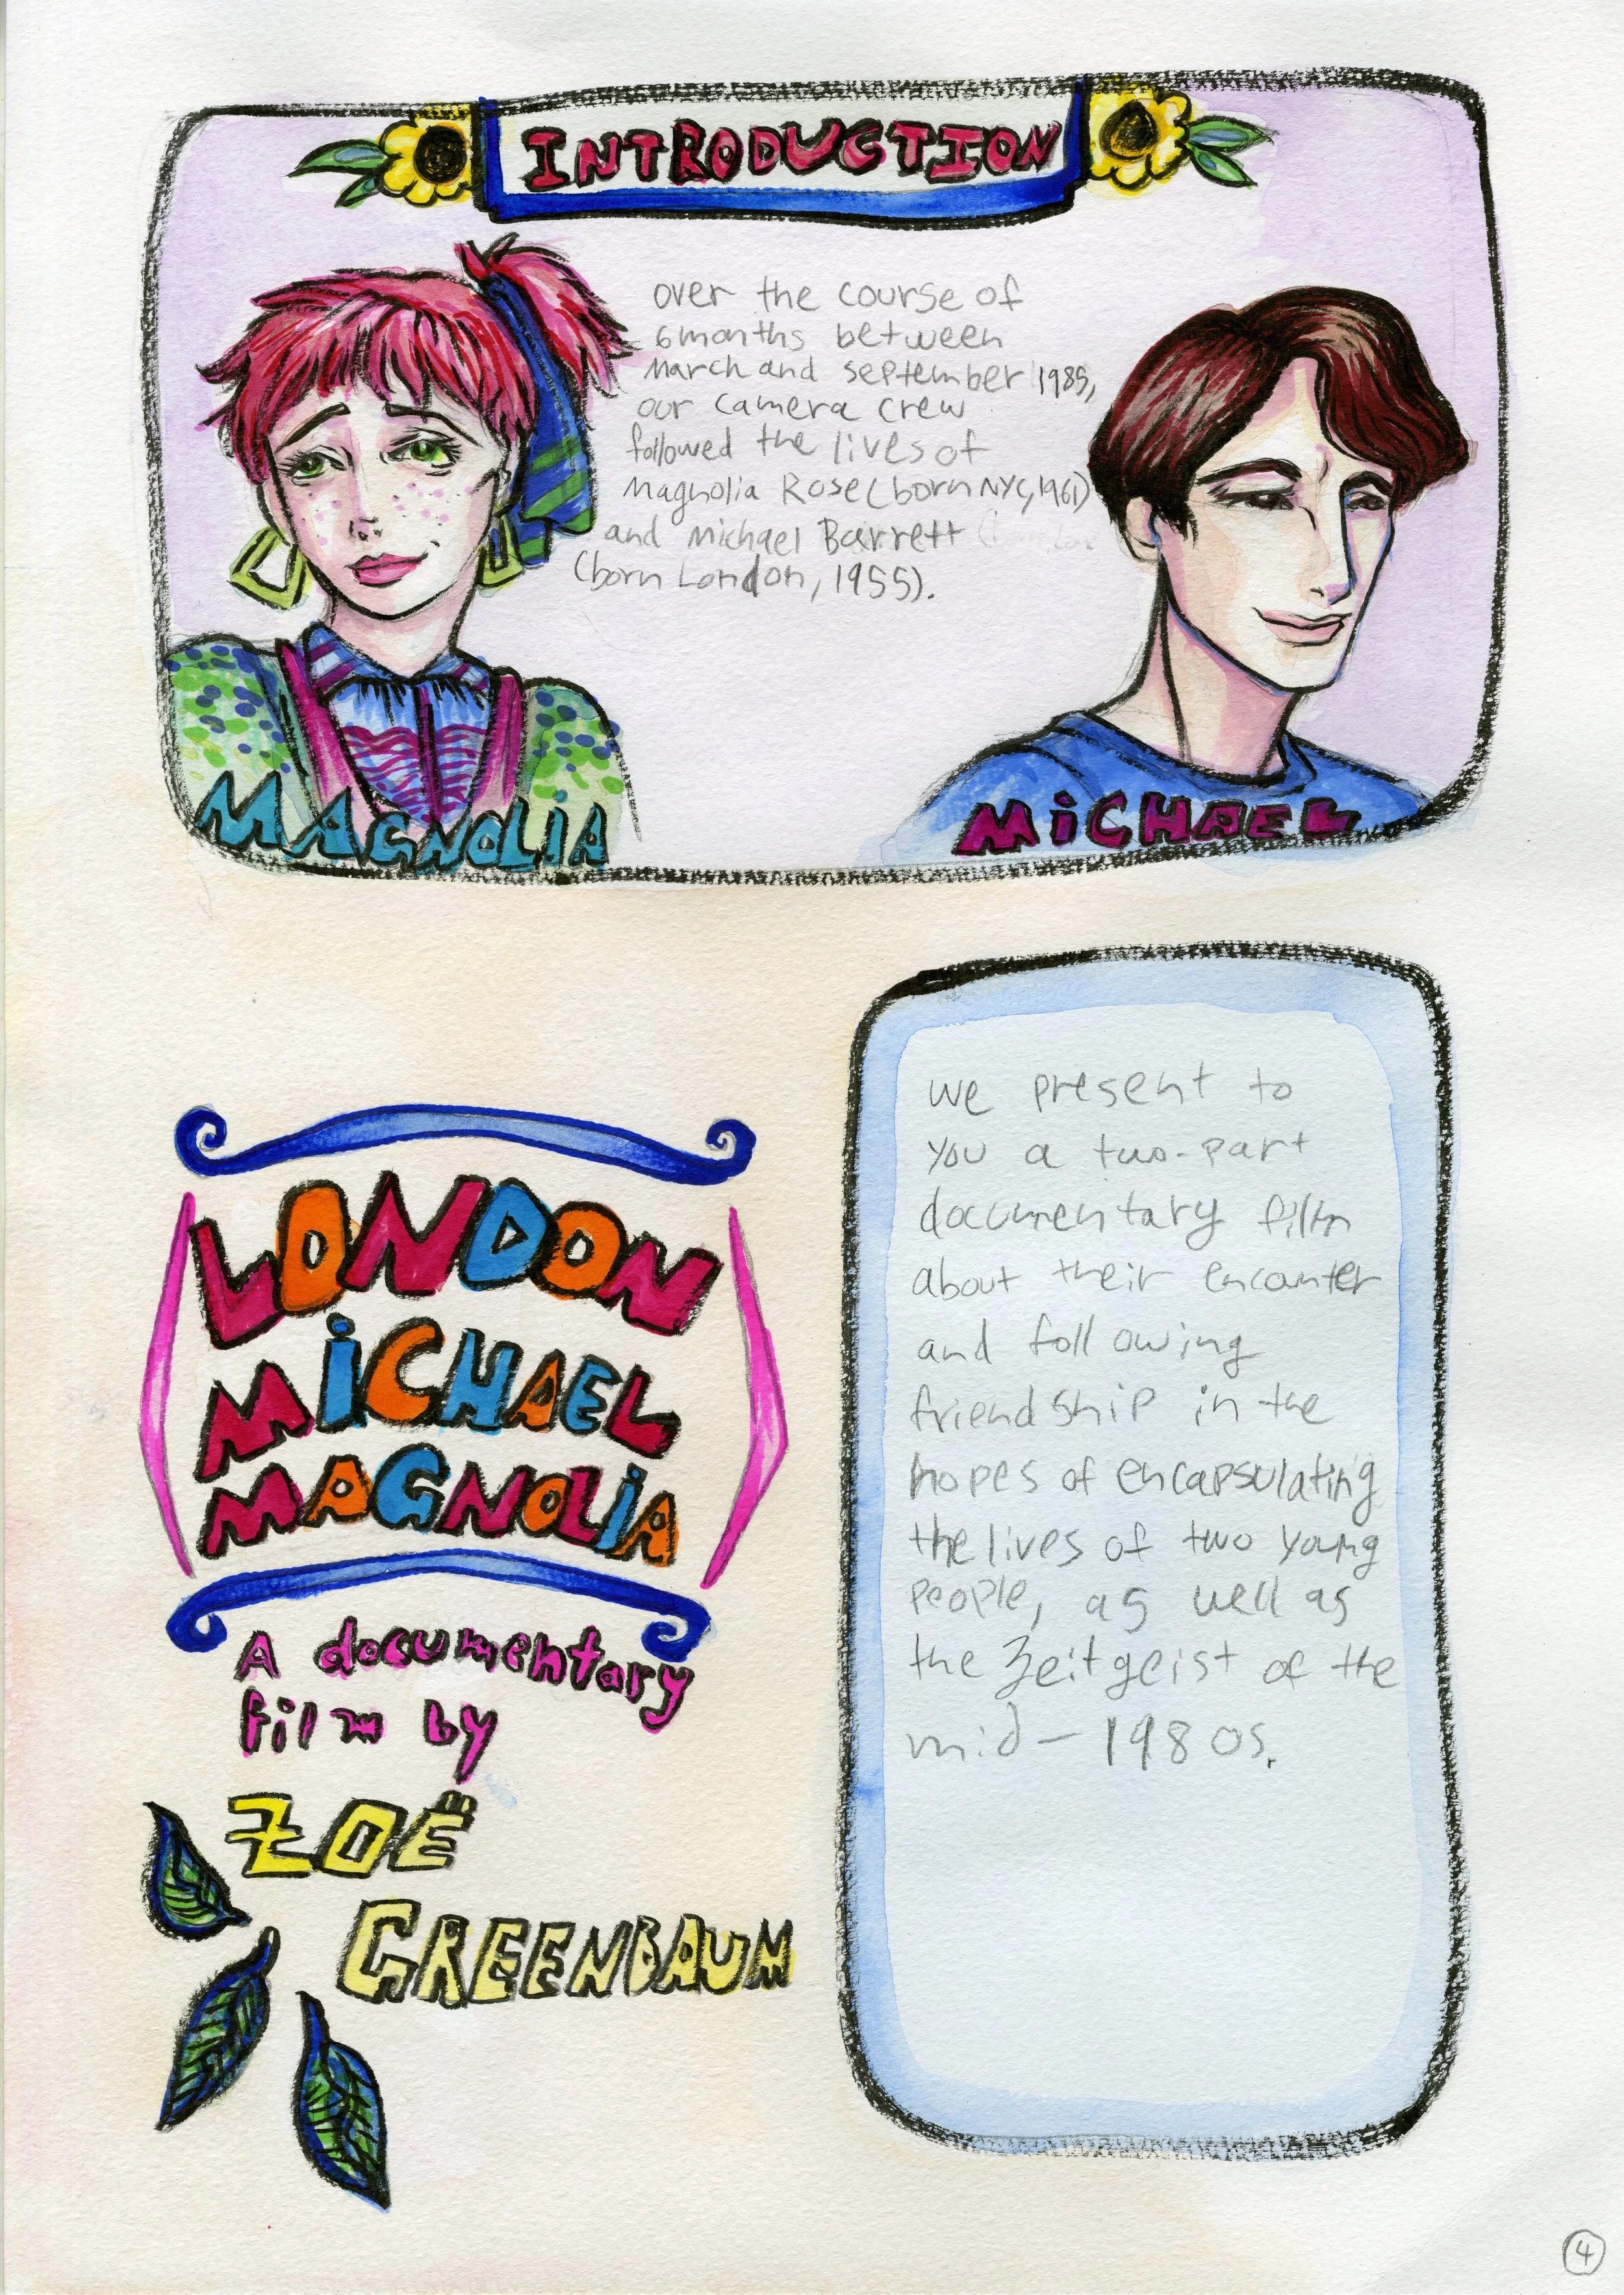 INTRODUCTION
over the course of
6 months between
march and september 1985,
our camera crew
followed the lives of
Magnolia Rose (born NYC, 1961)
and Michael Barrett
(born London, 1955).
MAGNOLIA
MiCHAEL
LONDON
MiCHAEL
MAGNOLiA
A documentary
film by
ZOË
GREENBAUM
we present to
you a two-part
documentary film
about their encounter
and following
friendship in the
hopes of encapsulating
the lives of two young
people, as well as
the zeitgeist of the
mid-1980s.
4